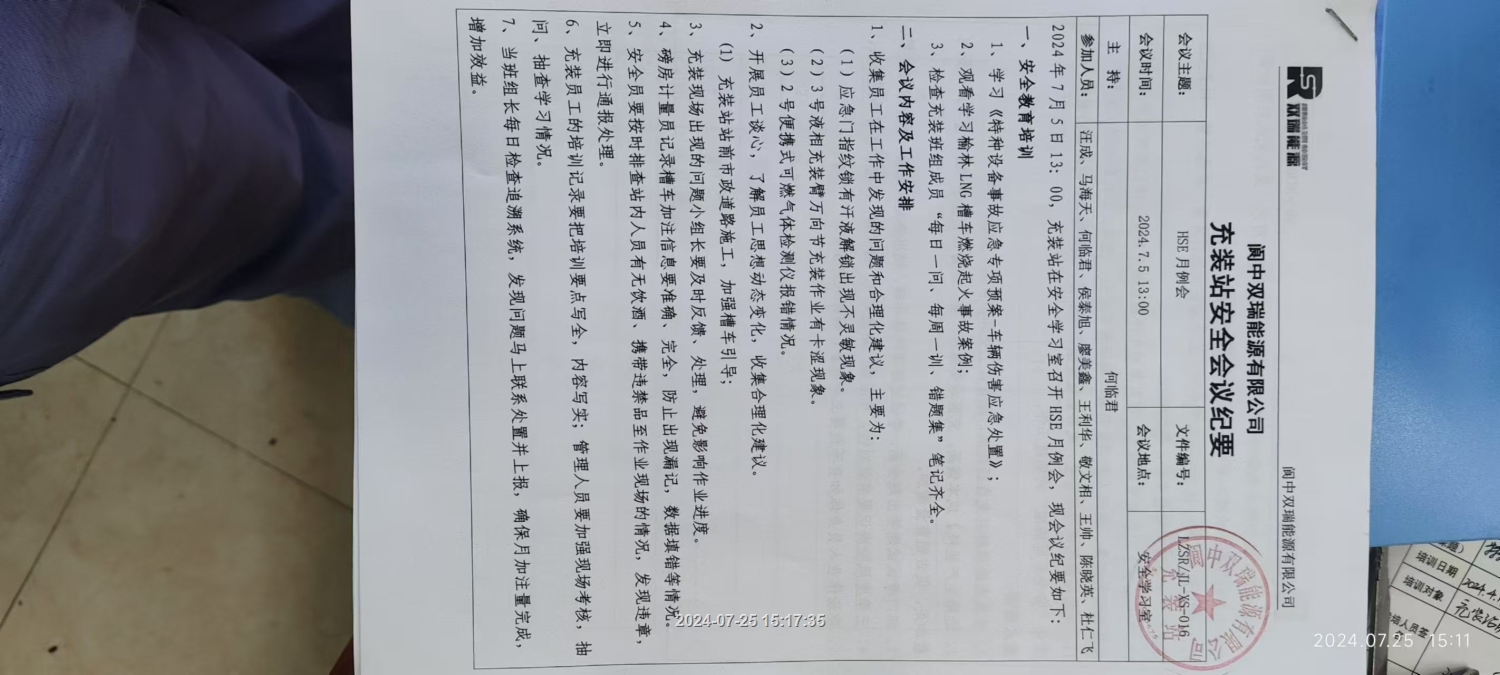 双瑞能源
阆中双瑞能源有限公司
阆中双瑞能源有限公司
充装站安全会议纪要
会议主题： HSE 月例会 文件编号： LZSR/JL-XS-016
会议时间： 2024.7.5 13:00 会议地点： 安全学习室
主 持： 何临君
参加人员： 汪成、马海天、何临君、侯泰旭、廖美鑫、王利华、敬文相、王帅、陈晓英、杜仁飞
2024 年 7 月 5 日 13：00，充装站在安全学习室召开 HSE 月例会，现会议纪要如下：
一、安全教育培训
1、学习《特种设备事故应急专项预案-车辆伤害应急处置》；
2、观看学习榆林 LNG 槽车燃烧起火事故案例；
3、检查充装班组成员“每日一问、每周一训、错题集”笔记齐全。
二、会议内容及工作安排
1、收集员工在工作中发现的问题和合理化建议，主要为：
（1）应急门指纹锁有汗液解锁出现不灵敏现象。
（2）3 号液相充装臂万向节充装作业有卡涩现象。
（3）2 号便携式可燃气体检测仪报错情况。
2、开展员工谈心，了解员工思想动态变化，收集合理化建议。
（1）充装站站前市政道路施工，加强槽车引导；
3、充装现场出现的问题小组长要及时反馈、处理，避免影响作业进度。
4、磅房计量员记录槽车加注信息要准确、完全，防止出现漏记，数据填错等情况。
5、安全员要按时排查站内人员有无饮酒、携带违禁品至作业现场的情况，发现违章，
立即进行通报处理。
6、充装员工的培训记录要把培训要点写全，内容写实；管理人员要加强现场考核，抽
问、抽查学习情况。
7、当班组长每日检查追溯系统，发现问题马上联系处置并上报，确保月加注量完成，
增加效益。
中双瑞能源有限公司
充装站
培训日期
培训对象
2024-07-25 15:17:35
2024.07.25 15:11